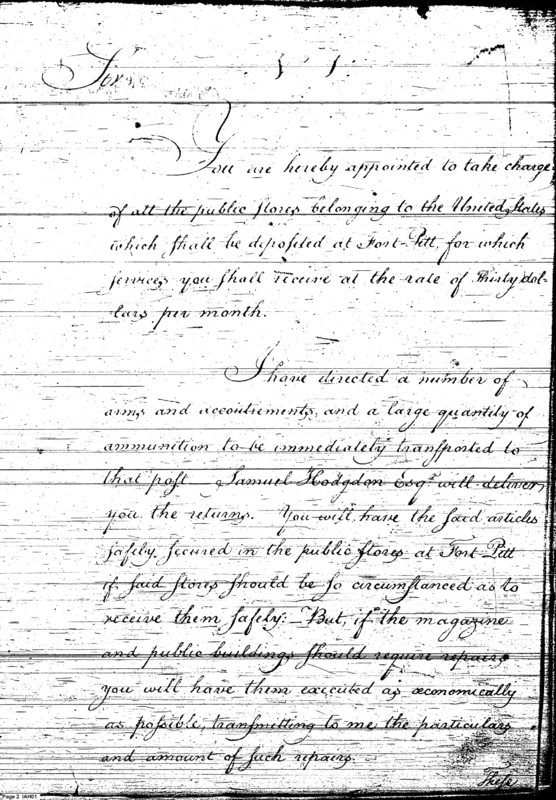 Sir
You are hereby appointed to take charge
of all the public stores belonging to the United States
which shall be deposited at Fort-Pitt, for which
services you shall receive at the rate of Thirty dol-
lars per month.
I have directed a number of
arms and accoutrements, and a large quantity of
ammunition to be immediately transported to
that post Samuel Hodgdon Esqr. will deliver
you the returns. You will have the said articles
safely secured in the public stores at Fort Pitt
if said stores should be so circumstanced as to
receive them safely:- But, if the magazine
and public buildings should require repairs
you will have them executed as œconomically
as possible, transmitting to me the particulars
and amount of such repairs.
These
Page 2 IAH01